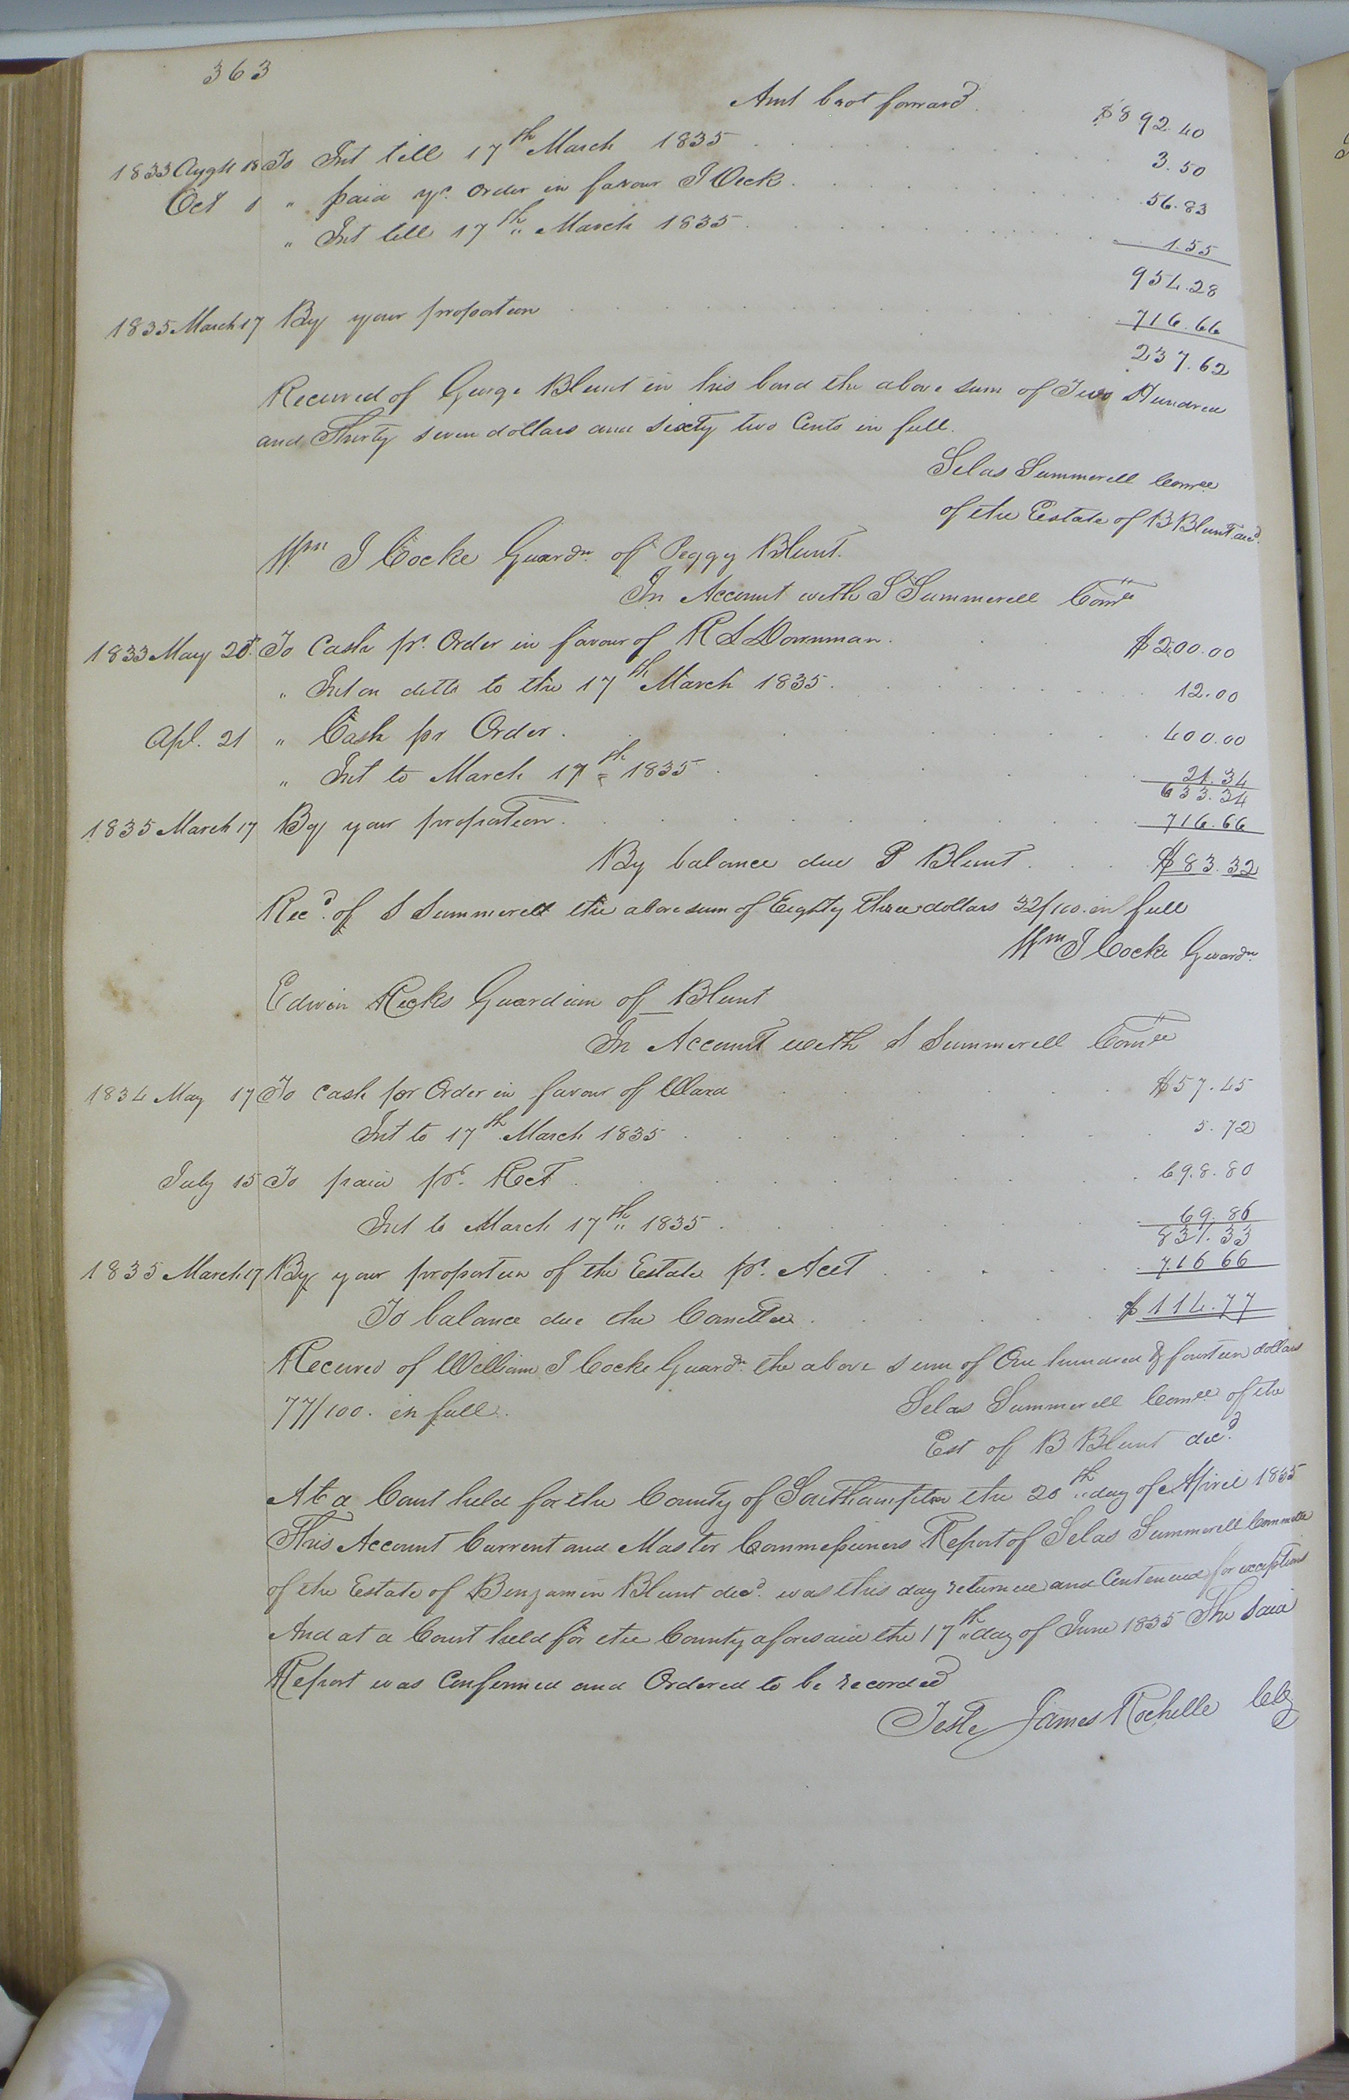 363
Amt brot forward $892.40
1833 Augst 18 To Int till 17th March 1835 3.50
Oct 1 " paid yr. order in favour J Beck 56.83
" Int till 17th March 1835 1.55
954.28
1835 March 17 By your proportion 716.66
237.62
Received of George Blunt in his bond the above sum of Two Hundred
and Thirty seven dollars and sixty two Cents in full.
Silas Summerell Comee
of the Estate of B Blunt decd.
Wm J Cocke Guardn of Peggy Blunt.
In Account with S Summerell Comee
1833 May 20 To Cash pr. Order in favour of R S Downman $200.00
" Int on ditto to the 17th March 1835 12.00
Apl. 21 " Cash pr Order 400.00
" Int to March 17th 1835 21.34
633.34
1835 March 17 By your proportion 716.66
By balance due P Blunt $83.32
Recd. of S Summerell the above sum of Eighty three dollars 32/100 in full
Wm J Cocke Guardn
Edwin Ricks Guardian of _ Blunt
In Account with S Summerell Comee
1834 May 17 To cash pr Order in favour of Ward $57.45
Int to 17th March 1835 5.72
July 15 To paid pr. Rect 698.80
Int to March 17th 1835 69.86
831.33
1835 March 17 By your proportion of the Estate pr. Acct 716 66
To balance due the Comittee $114.77
Received of William J Cocke Guardn. the above sum of One hundred & fourteen dollars
77/100. in full. Silas Summerell Comee of the
Est of B Blunt decd.
At a Court held for the County of Southampton the 20th day of April 1835
This Account Current and Master Commissioners Report of Silas Summerell Committee
of the Estate of Benjamin Blunt decd. was this day returned and Continued for exceptions
And at a Court held for the County aforesaid the 17th day of June 1835 The said
Report was Confirmed and Ordered to be recorded
Teste James Rochelle Clk